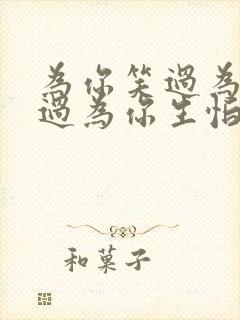 為你笑過為
過為你生怕
和菓子